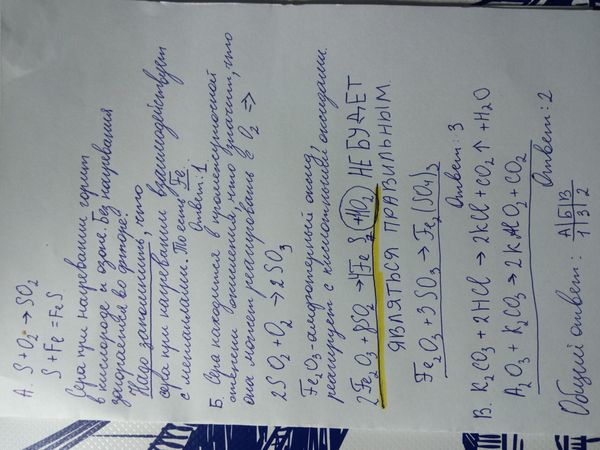 А. S+O2→SO2
S+Fe=FeS
Сера при нагревании горит
в кислороде и озоне. Без нагревания
загорается во фторе.
Надо запомнить, что
сера при нагревании взаимодействует
с металлами. То есть Fe
Ответ: 1
Б. Сера находится в промежуточной
степени окисления, что значит, что
она может реагировать с O2 ⇒
2SO2+O2→2SO3
Fe2O3-амфотерный оксид,
реагирует с кислотными оксидами.
НЕ БУДЕТ
ЯВЛЯТЬСЯ ПРАВИЛЬНЫМ
Fe2O3+3SO3→Fe2(SO4)3
Ответ: 3
В. K2CO3+2HCl→2KCl+CO2↑+H2O
A2O3+K2CO3→2KAlO2+CO2
Ответ: 2
Общий ответ: А|Б|В
1|3|2